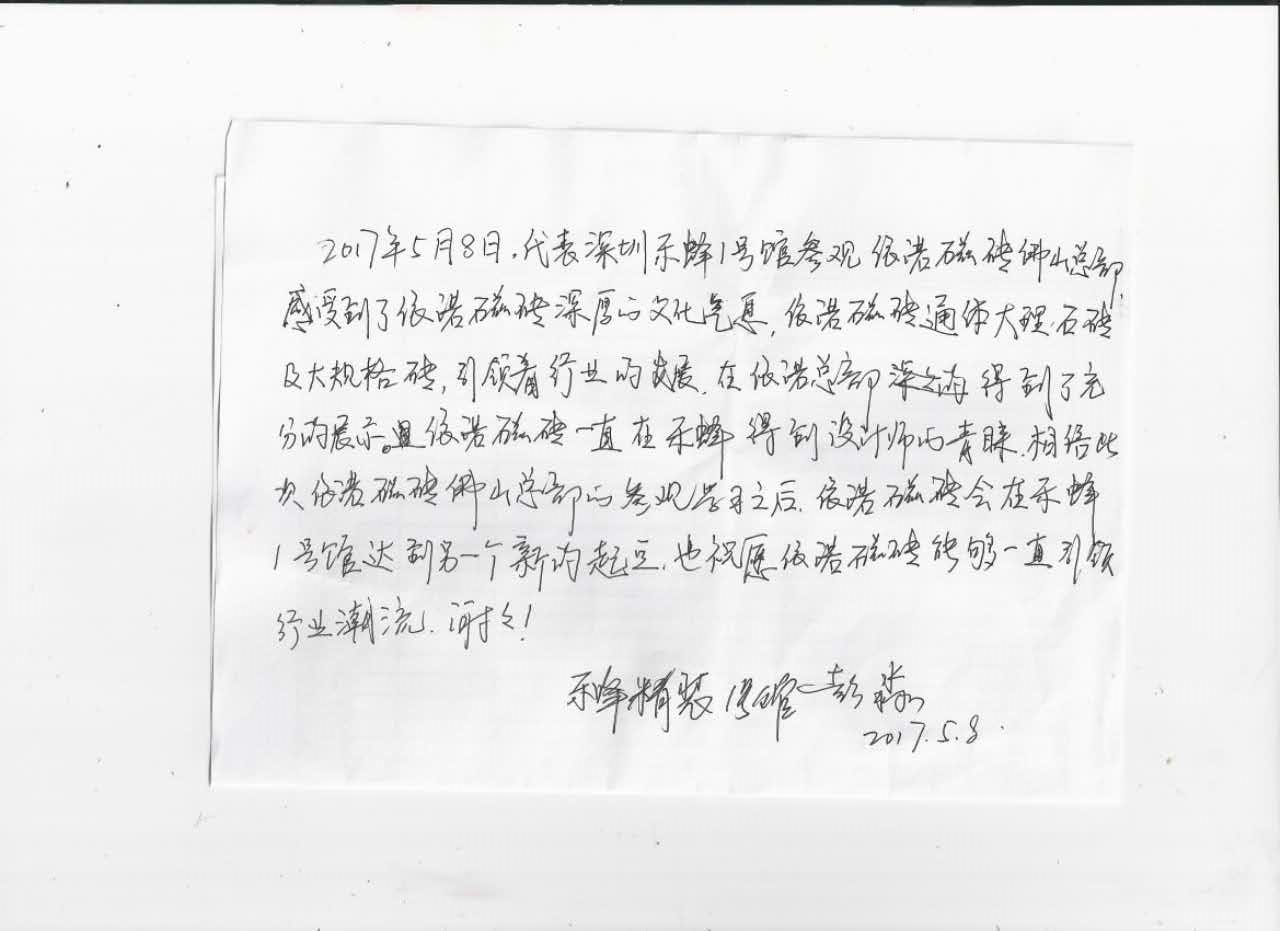 2017年5月8日.代表深圳乐蜂1号馆参观依诺磁砖佛山总部.
感受到了依诺磁砖深厚的文化气息,依诺磁砖通体大理石砖
及大规格砖,引领着行业的发展.在依诺总部 得到了充
分的展示。且依诺磁砖一直在乐蜂得到设计师的青睐.相信此
次依诺磁砖佛山总部的参观学习之后.依诺磁砖会在乐蜂
1号馆达到另一个新的起点.也祝愿依诺磁砖能够一直引领
行业潮流.谢谢!
乐蜂精装1号馆—彭
2017.5.8.